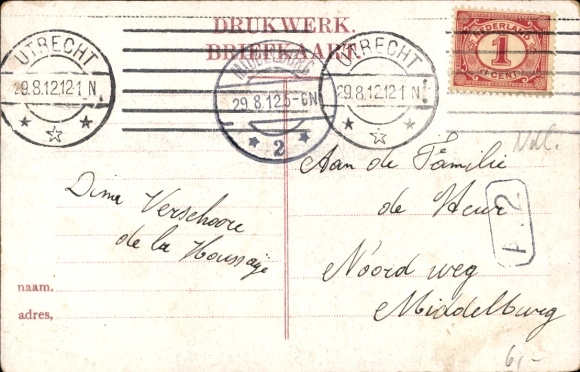 DRUKWERK.
BRIEFKAART.
UTRECHT
29.8.12.12-1 N.
MIDDELBURG
29.8.12.5-6N
2
UTRECHT
29.8.12.12-1 N.
NEDERLAND
1
CENT
Ndl.
Aan de Familie
de Heur
Noord weg
Middelburg
Dina Verschoore
de la Houssaÿe
naam.
adres,
6,-